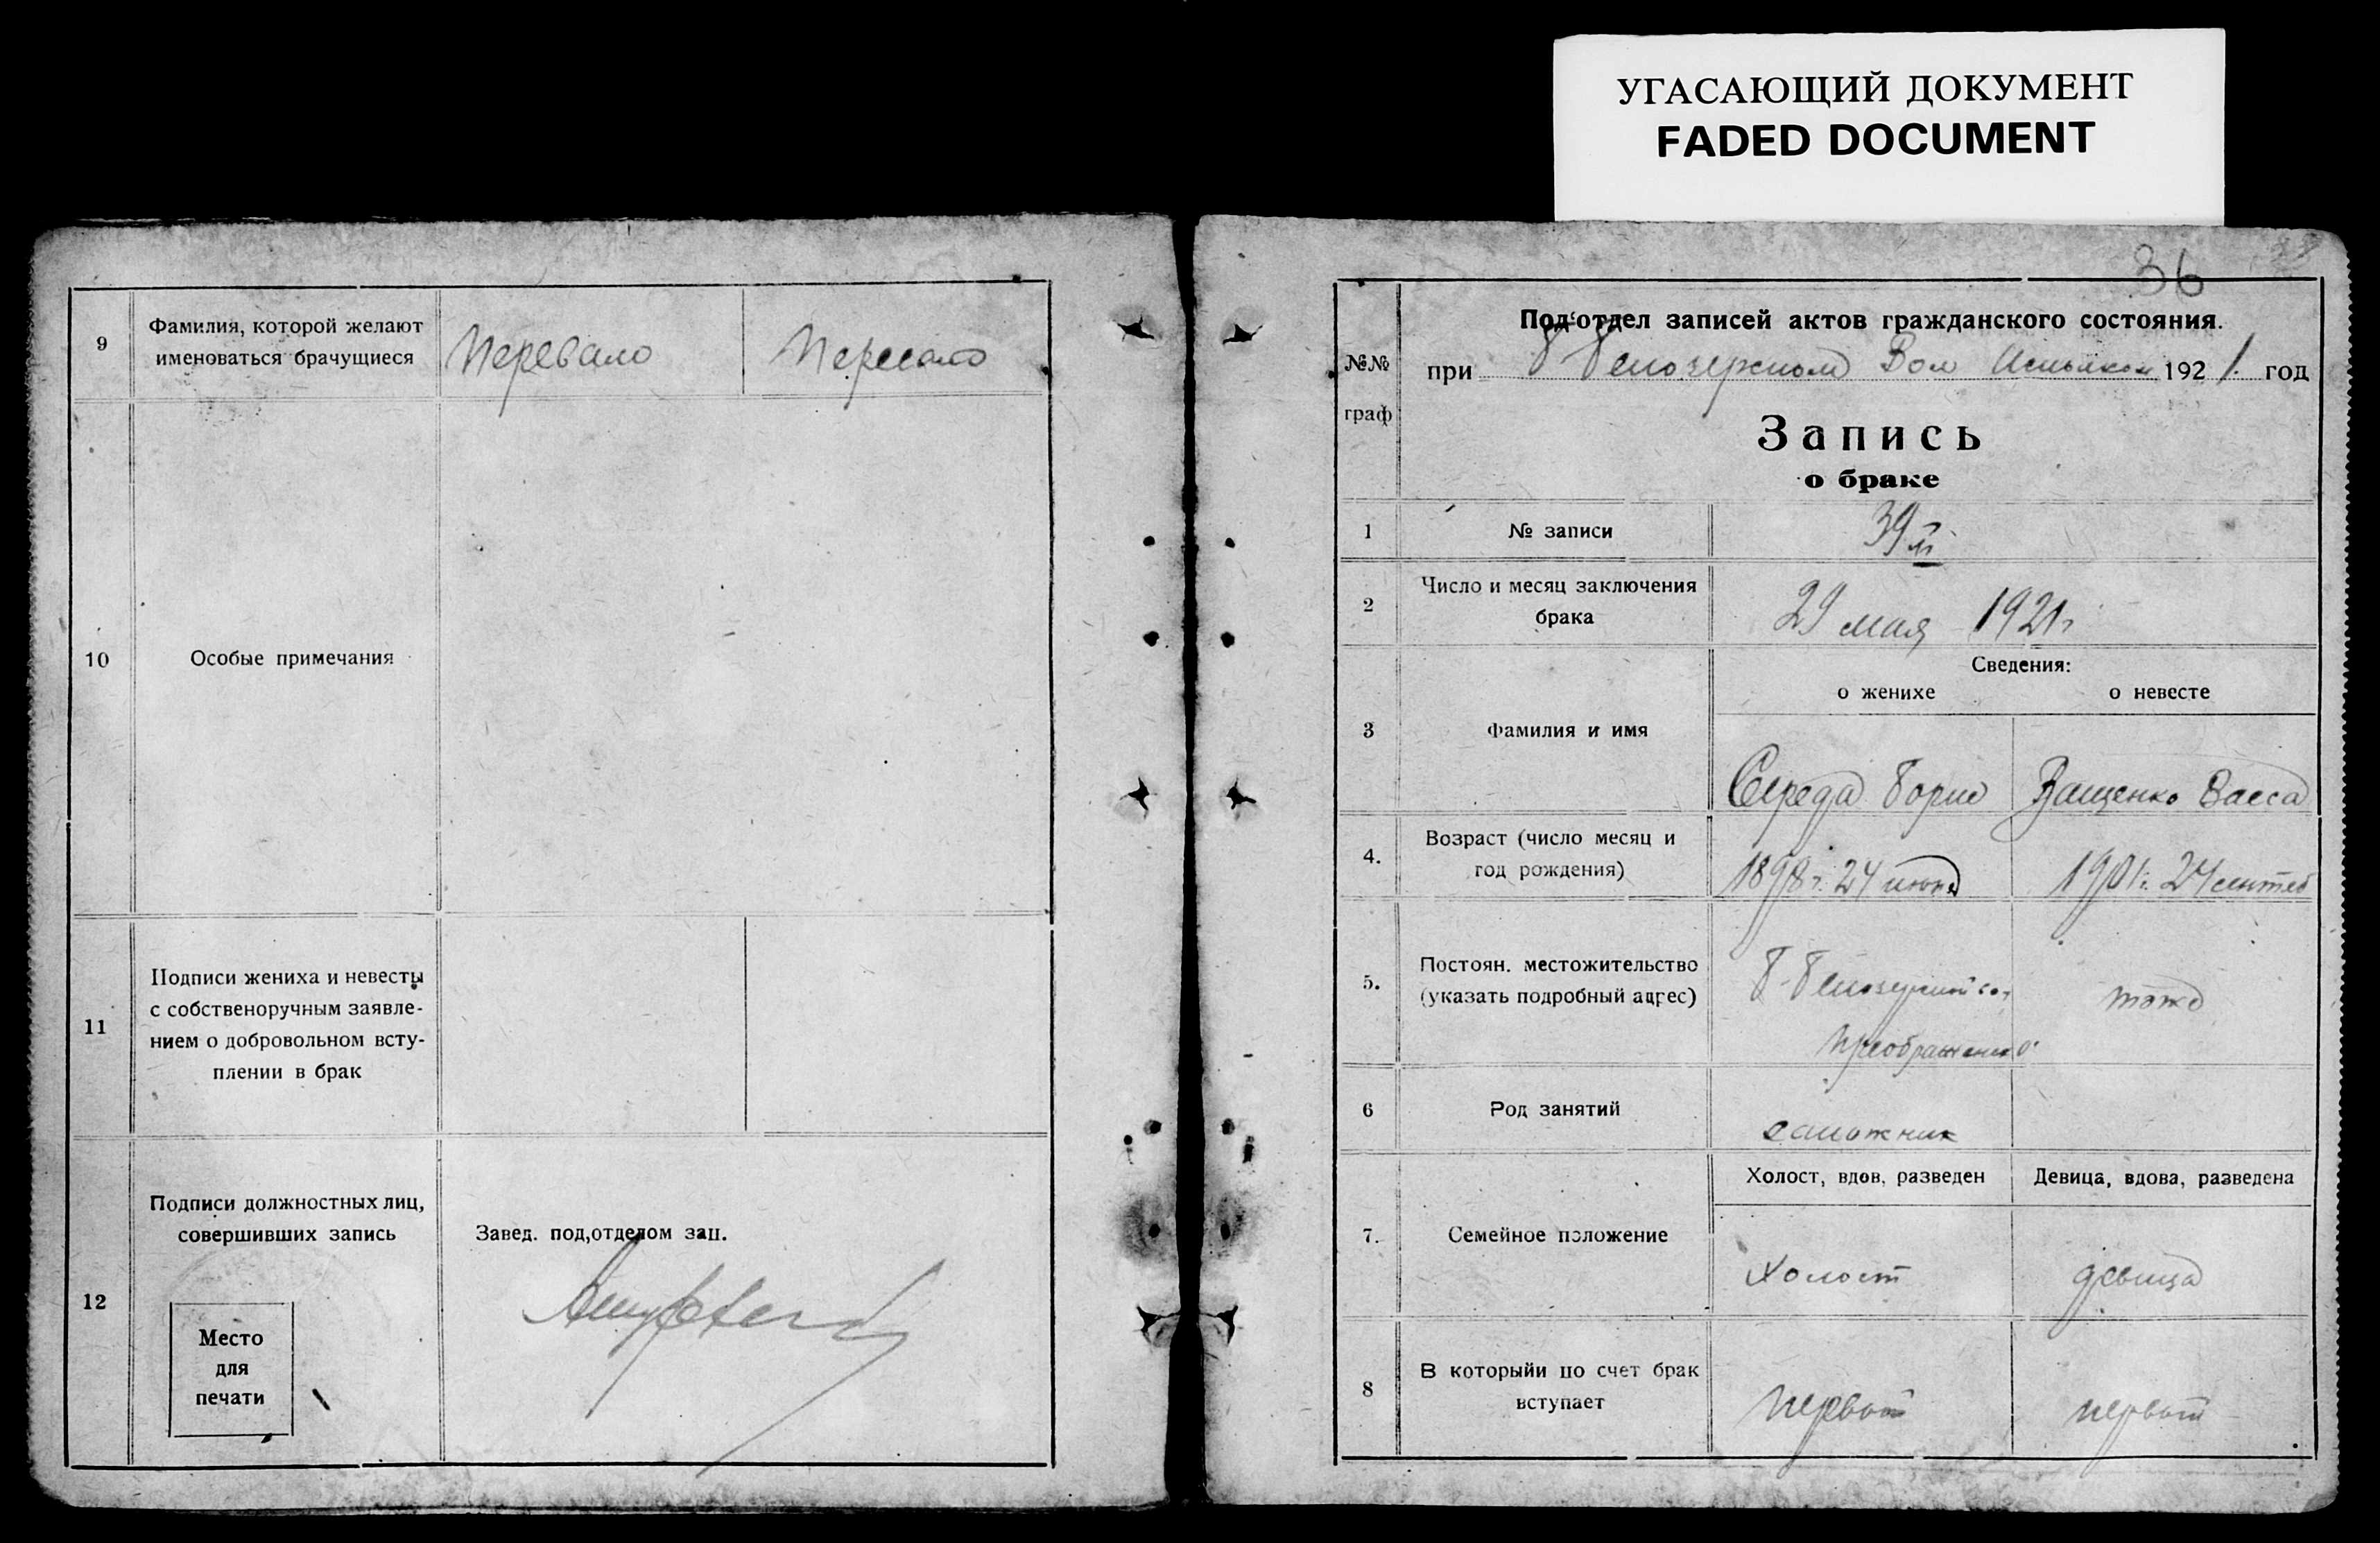 УГАСАЮЩИЙ ДОКУМЕНТ
FADED DOCUMENT
9
Фамилия, которой желают
именоваться брачущиеся
Перевало
Перевало
10
Особые примечания
11
Подписи жениха и невесты
с собственоручным заявле-
нием о добровольном всту-
плении в брак
12
Подписи должностных лиц,
совершивших запись
Завед. под,отделом зап.
Место
для
печати
36
№№
граф
Под‘отдел записей актов гражданского состояния.
при Б Белозерском Вол Исполком 1921 год
Запись
о браке
1
№ записи
39й
2
Число и месяц заключения
брака
29 мая 1921г
3
Фамилия и имя
Сведения:
о женихе
о невесте
Середа Борис
Ващенко Васса
4.
Возраст (число месяц и
год рождения)
1898г. 24 июня
1901г. 24 сентяб
5.
Постоян. местожительство
(указать подробный адрес)
Б-Белозерской вол
тоже
6
Род занятий
сапожник
7.
Семейное положение
Холост, вдов, разведен
Девица, вдова, разведена
Холост
девица
8
В которыйи по счет брак
вступает
первый
первый